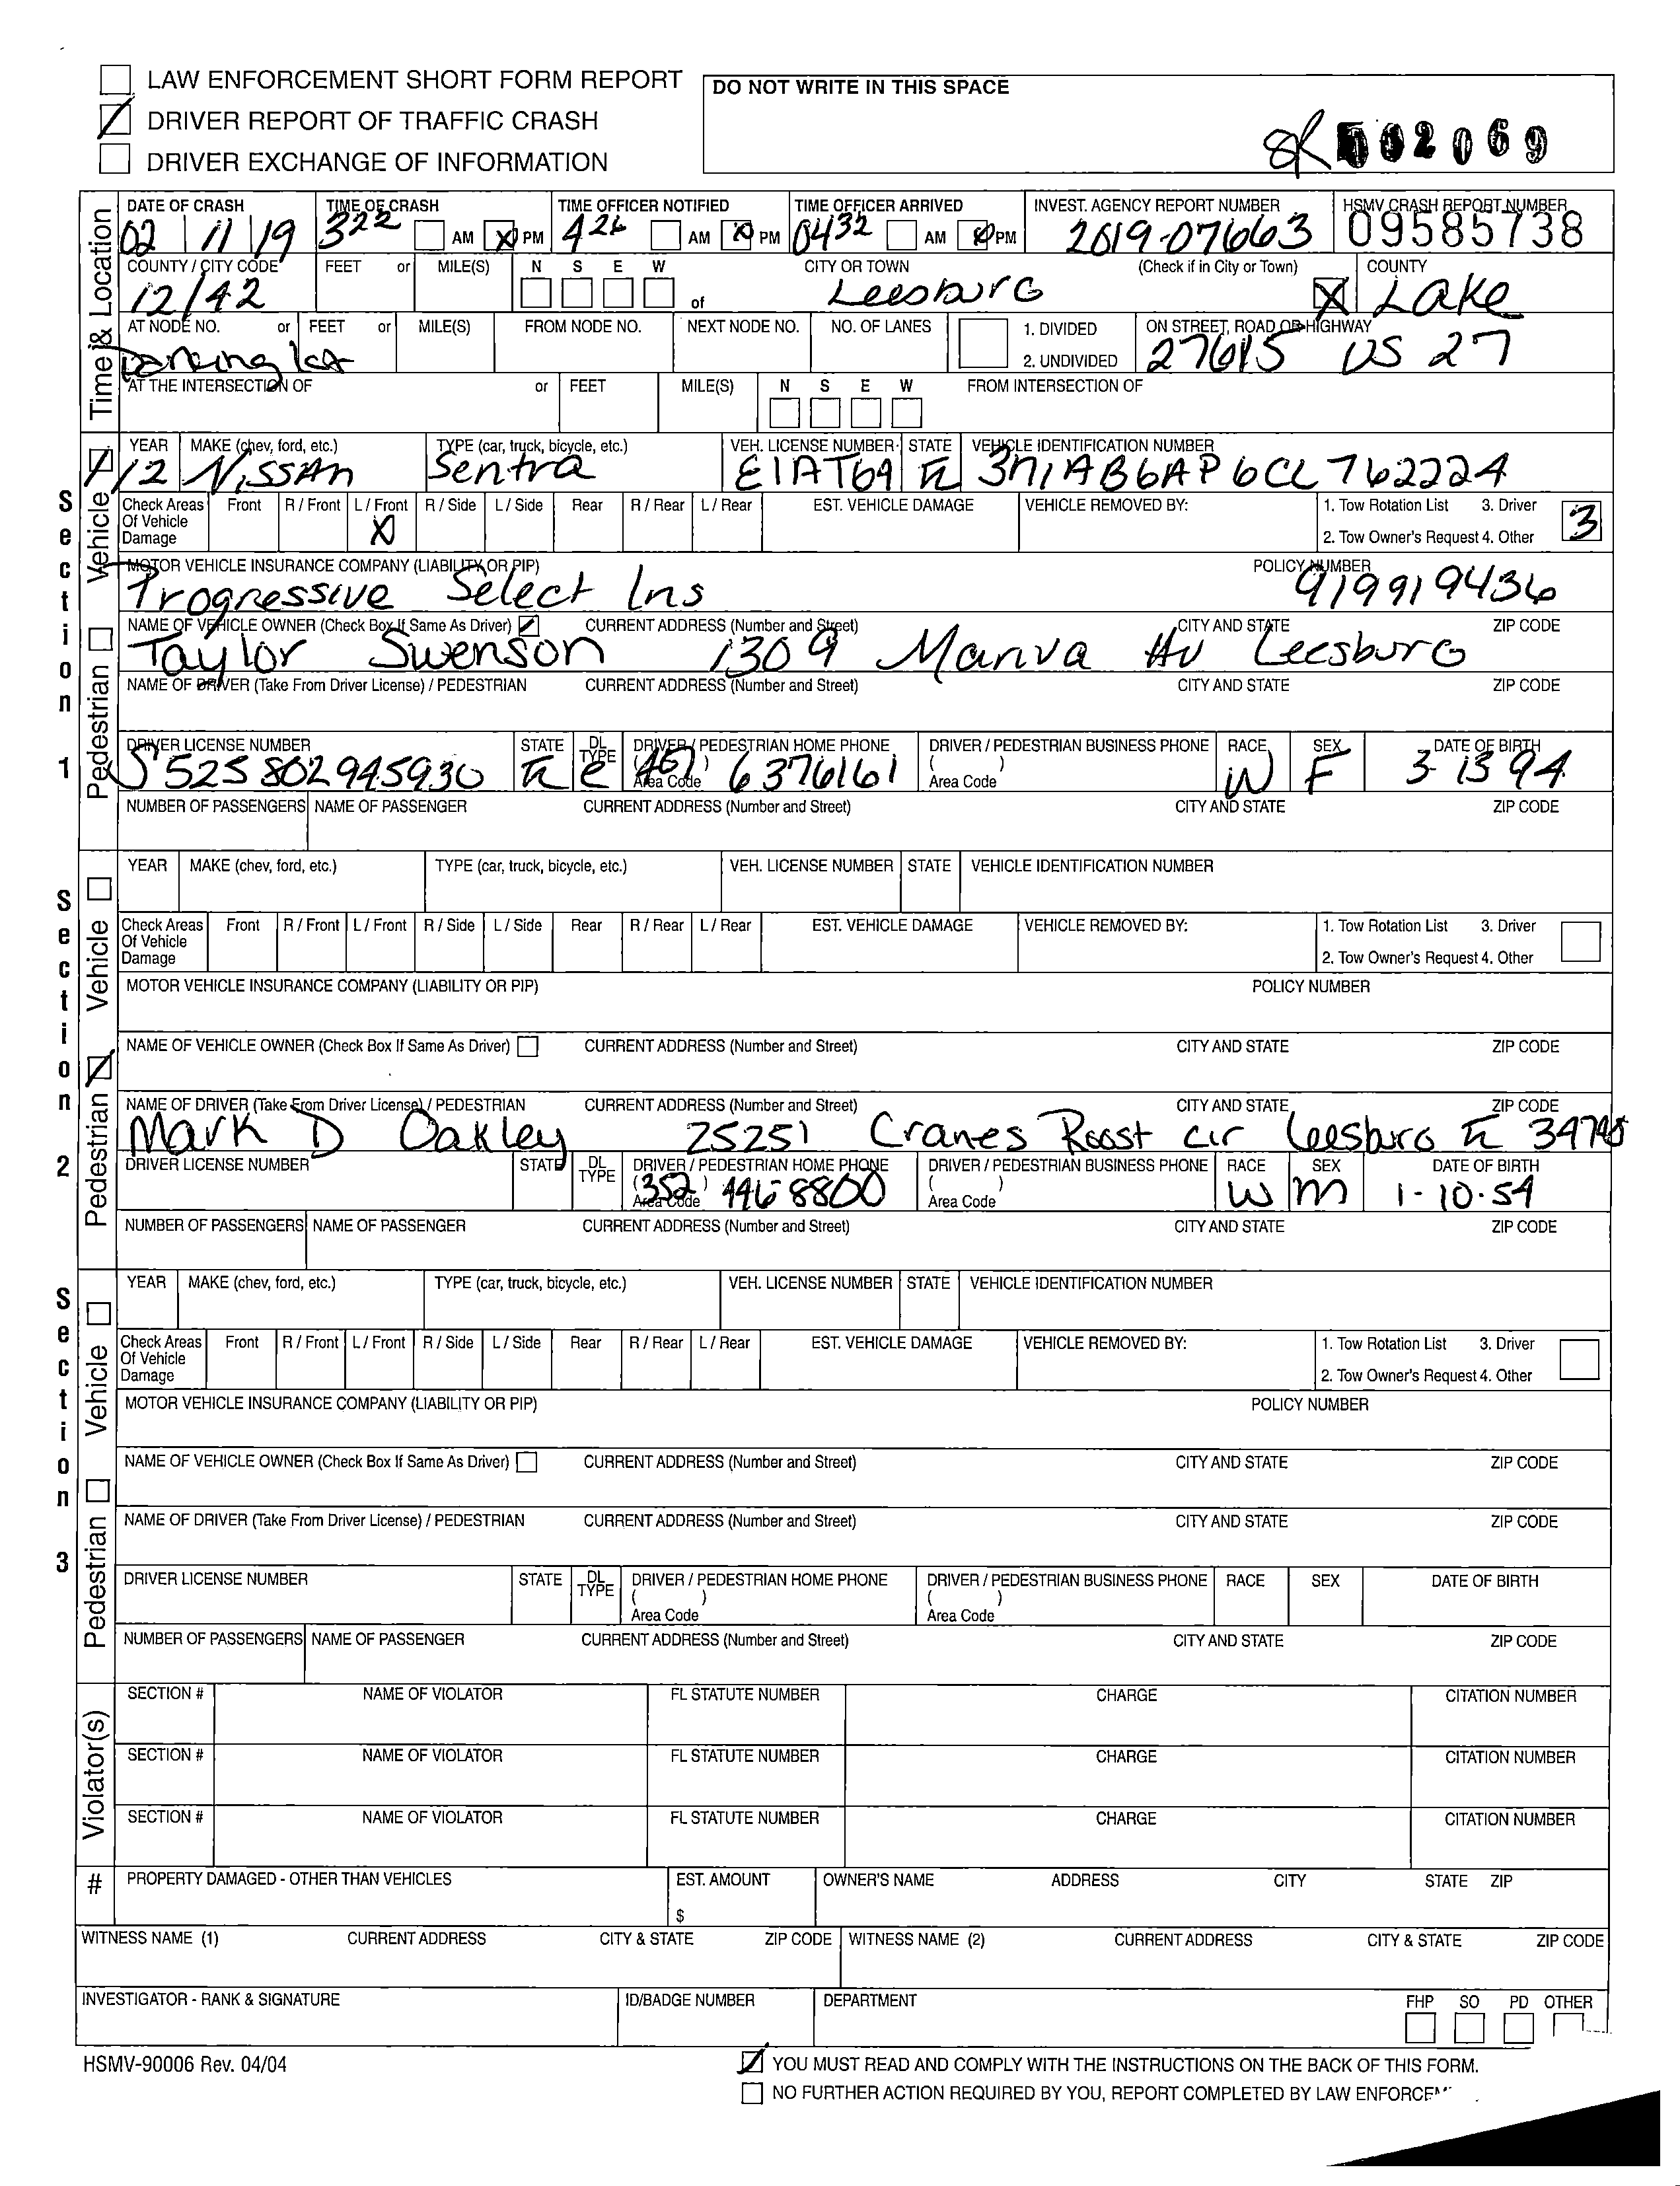 LAW ENFORCEMENT SHORT FORM REPORT
DRIVER REPORT OF TRAFFIC CRASH
DRIVER EXCHANGE OF INFORMATION
DO NOT WRITE IN THIS SPACE
02069
Time & Location
DATE OF CRASH TIME OF CRASH TIME OFFICER NOTIFIED TIME OFFICER ARRIVED INVEST. AGENCY REPORT NUMBER HSMV CRASH REPORT NUMBER
02 11 19 322 AM X PM 426 AM X PM 0432 AM X PM 2019-07663 09585738
COUNTY / CITY CODE FEET or MILE(S) N S E W CITY OR TOWN (Check if in City or Town) COUNTY
12/42 of Leesburg X Lake
AT NODE NO. or FEET or MILE(S) FROM NODE NO. NEXT NODE NO. NO. OF LANES 1. DIVIDED ON STREET, ROAD OR HIGHWAY
Parking lot 2. UNDIVIDED 27615 US 27
AT THE INTERSECTION OF or FEET MILE(S) N S E W FROM INTERSECTION OF
Section 1
Vehicle
Pedestrian
YEAR MAKE (chev, ford, etc.) TYPE (car, truck, bicycle, etc.) VEH. LICENSE NUMBER STATE VEHICLE IDENTIFICATION NUMBER
12 Nissan Sentra EIAT69 FL 3N1AB6AP6CL762224
Check Areas Of Vehicle Damage Front R / Front L / Front R / Side L / Side Rear R / Rear L / Rear EST. VEHICLE DAMAGE VEHICLE REMOVED BY: 1. Tow Rotation List 3. Driver
X 2. Tow Owner's Request 4. Other 3
MOTOR VEHICLE INSURANCE COMPANY (LIABILITY OR PIP) POLICY NUMBER
Progressive Select Ins 919919436
NAME OF VEHICLE OWNER (Check Box If Same As Driver) CURRENT ADDRESS (Number and Street) CITY AND STATE ZIP CODE
Taylor Swenson 1309 Av Leesburg
NAME OF DRIVER (Take From Driver License) / PEDESTRIAN CURRENT ADDRESS (Number and Street) CITY AND STATE ZIP CODE
DRIVER LICENSE NUMBER STATE DL TYPE DRIVER / PEDESTRIAN HOME PHONE DRIVER / PEDESTRIAN BUSINESS PHONE RACE SEX DATE OF BIRTH
S525802945930 FL E (407) 6376161 ( ) W F 3 13 94
Area Code Area Code
NUMBER OF PASSENGERS NAME OF PASSENGER CURRENT ADDRESS (Number and Street) CITY AND STATE ZIP CODE
Section 2
Vehicle
Pedestrian
YEAR MAKE (chev, ford, etc.) TYPE (car, truck, bicycle, etc.) VEH. LICENSE NUMBER STATE VEHICLE IDENTIFICATION NUMBER
Check Areas Of Vehicle Damage Front R / Front L / Front R / Side L / Side Rear R / Rear L / Rear EST. VEHICLE DAMAGE VEHICLE REMOVED BY: 1. Tow Rotation List 3. Driver
2. Tow Owner's Request 4. Other
MOTOR VEHICLE INSURANCE COMPANY (LIABILITY OR PIP) POLICY NUMBER
NAME OF VEHICLE OWNER (Check Box If Same As Driver) CURRENT ADDRESS (Number and Street) CITY AND STATE ZIP CODE
NAME OF DRIVER (Take From Driver License) / PEDESTRIAN CURRENT ADDRESS (Number and Street) CITY AND STATE ZIP CODE
Mark D Oakley 25251 Cranes Roost cir Leesburg FL 34748
DRIVER LICENSE NUMBER STATE DL TYPE DRIVER / PEDESTRIAN HOME PHONE DRIVER / PEDESTRIAN BUSINESS PHONE RACE SEX DATE OF BIRTH
(352) 446 8800 ( ) W M 1-10-54
Area Code Area Code
NUMBER OF PASSENGERS NAME OF PASSENGER CURRENT ADDRESS (Number and Street) CITY AND STATE ZIP CODE
Section 3
Vehicle
Pedestrian
YEAR MAKE (chev, ford, etc.) TYPE (car, truck, bicycle, etc.) VEH. LICENSE NUMBER STATE VEHICLE IDENTIFICATION NUMBER
Check Areas Of Vehicle Damage Front R / Front L / Front R / Side L / Side Rear R / Rear L / Rear EST. VEHICLE DAMAGE VEHICLE REMOVED BY: 1. Tow Rotation List 3. Driver
2. Tow Owner's Request 4. Other
MOTOR VEHICLE INSURANCE COMPANY (LIABILITY OR PIP) POLICY NUMBER
NAME OF VEHICLE OWNER (Check Box If Same As Driver) CURRENT ADDRESS (Number and Street) CITY AND STATE ZIP CODE
NAME OF DRIVER (Take From Driver License) / PEDESTRIAN CURRENT ADDRESS (Number and Street) CITY AND STATE ZIP CODE
DRIVER LICENSE NUMBER STATE DL TYPE DRIVER / PEDESTRIAN HOME PHONE DRIVER / PEDESTRIAN BUSINESS PHONE RACE SEX DATE OF BIRTH
( ) ( )
Area Code Area Code
NUMBER OF PASSENGERS NAME OF PASSENGER CURRENT ADDRESS (Number and Street) CITY AND STATE ZIP CODE
Violator(s)
SECTION # NAME OF VIOLATOR FL STATUTE NUMBER CHARGE CITATION NUMBER
SECTION # NAME OF VIOLATOR FL STATUTE NUMBER CHARGE CITATION NUMBER
SECTION # NAME OF VIOLATOR FL STATUTE NUMBER CHARGE CITATION NUMBER
# PROPERTY DAMAGED - OTHER THAN VEHICLES EST. AMOUNT OWNER'S NAME ADDRESS CITY STATE ZIP
$
WITNESS NAME (1) CURRENT ADDRESS CITY & STATE ZIP CODE WITNESS NAME (2) CURRENT ADDRESS CITY & STATE ZIP CODE
INVESTIGATOR - RANK & SIGNATURE ID/BADGE NUMBER DEPARTMENT FHP SO PD OTHER
HSMV-90006 Rev. 04/04 YOU MUST READ AND COMPLY WITH THE INSTRUCTIONS ON THE BACK OF THIS FORM.
NO FURTHER ACTION REQUIRED BY YOU, REPORT COMPLETED BY LAW